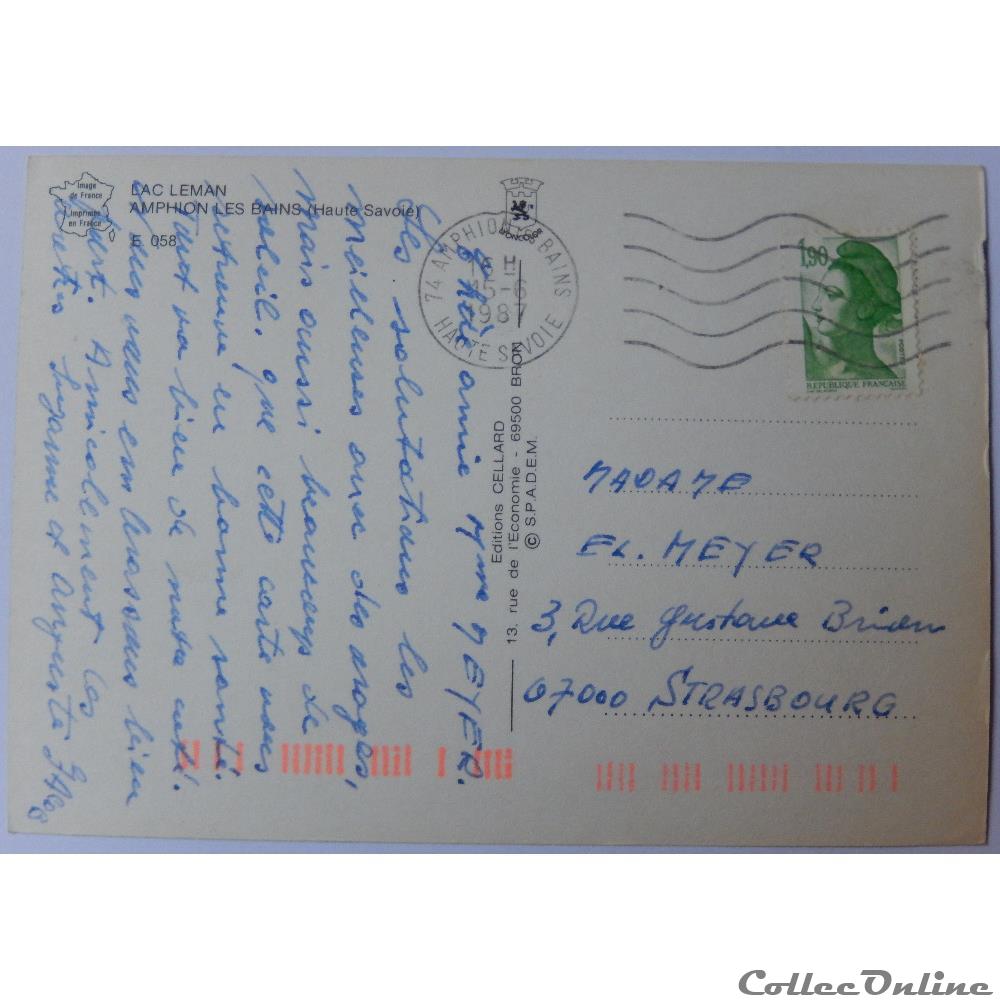 Image
de France
Imprimée
en France
LAC LEMAN
AMPHION LES BAINS (Haute Savoie)
E 058
Chère amie Mme MEYER.
Les salutations les
meilleures avec des orages,
mais aussi beaucoup de
soleil. que cette carte vous
retrouve en bonne santé.
Tout va bien de notre côté.
nous vous embrassons bien
fort. Amicalement les
Suzanne et Auguste
Editions CELLARD
13, rue de l'Economie - 69500 BRON
© S.P.A.D.E.M.
74 AMPHION LES BAINS
15 H
25-6
1987
HAUTE SAVOIE
1,90
POSTES
REPUBLIQUE FRANÇAISE
MADAME
EL. MEYER
3, Rue Gustave Brion
67000 STRASBOURG
CollecOnline